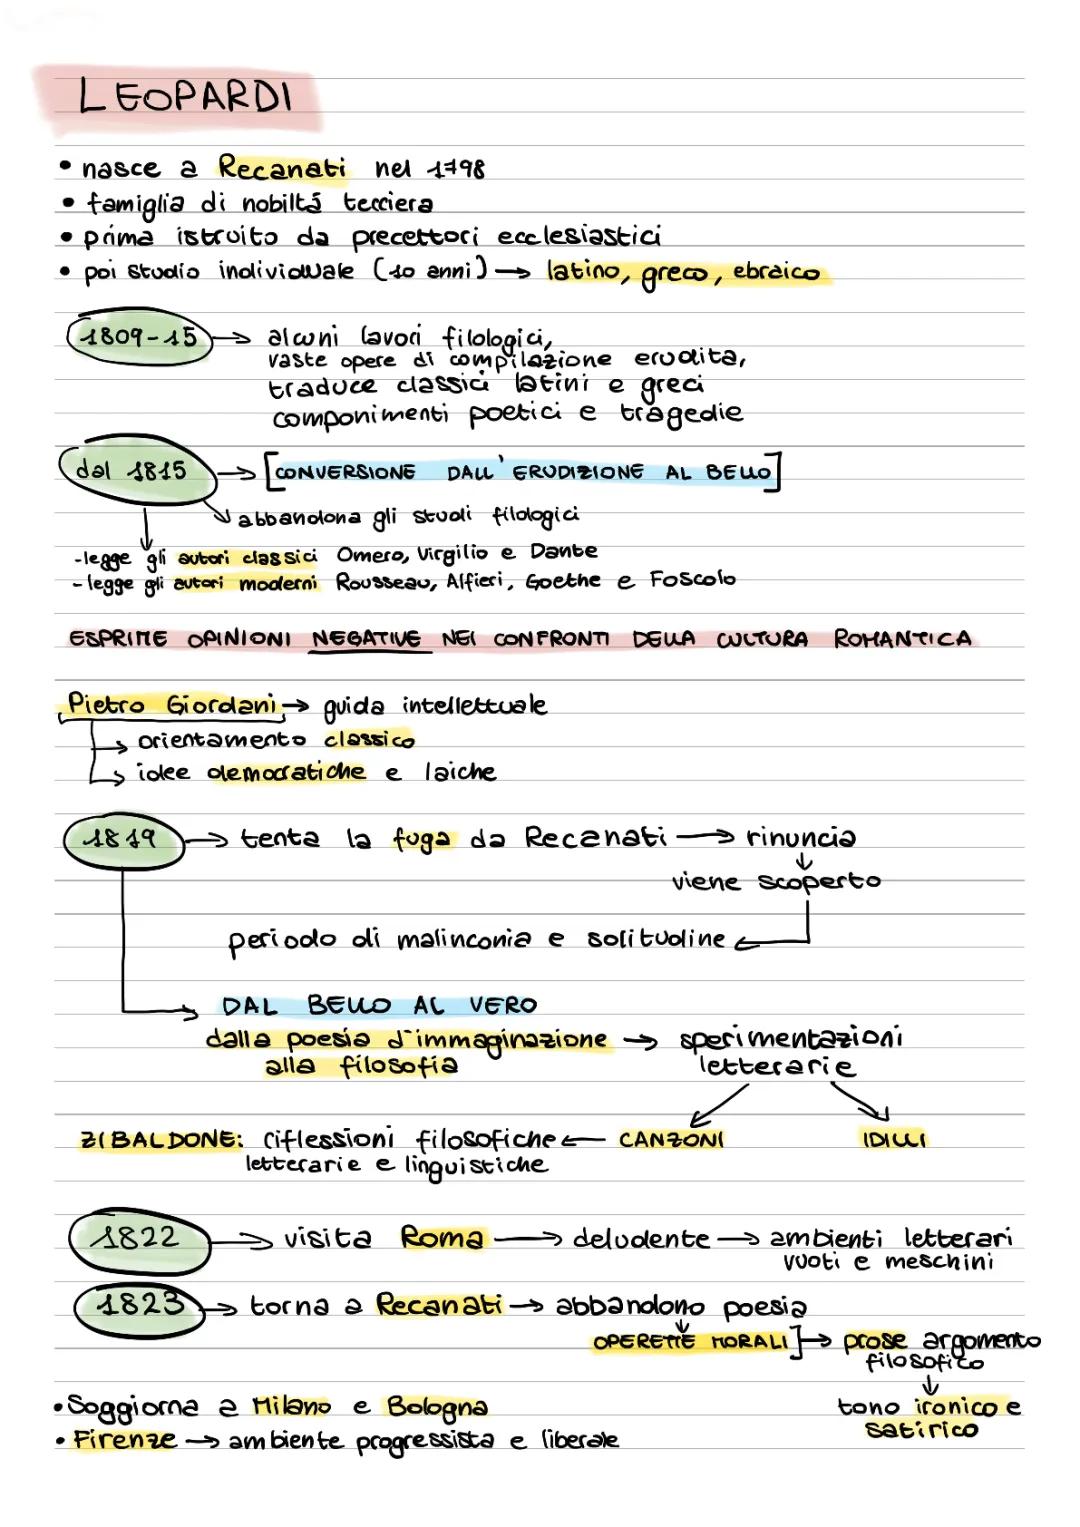 LEOPARDI
• nasce a Recanati nel 1798
• famiglia di nobiltá terriera
• prima istruito da precettori ecclesiastici
• poi studio individuale (10 anni) → latino, greco, ebraico
1809-15 → alcuni lavori filologici,
vaste opere di compilazione erudita,
traduce classici latini e greci
componimenti poetici e tragedie
dal 1815 → [CONVERSIONE DALL'ERUDIZIONE AL BELLO]
↘ abbandona gli studi filologici
-legge gli autori classici Omero, Virgilio e Dante
-legge gli autori moderni Rousseau, Alfieri, Goethe e Foscolo
ESPRIME OPINIONI NEGATIVE NEI CONFRONTI DELLA CULTURA ROMANTICA
Pietro Giordani → guida intellettuale
→ orientamento classico
→ idee democratiche e laiche
1819 → tenta la fuga da Recanati → rinuncia
↓
viene scoperto
periodo di malinconia e solitudine ←
→ DAL BELLO AL VERO
dalla poesia d'immaginazione → sperimentazioni
alla filosofia letterarie
ZIBALDONE: riflessioni filosofiche ← CANZONI IDILLI
letterarie e linguistiche
1822 → visita Roma → deludente → ambienti letterari
vuoti e meschini
1823 → torna a Recanati → abbandono poesia
↓
OPERETTE MORALI] → prose argomento
filosofico
↓
• Soggiorna a Milano e Bologna tono ironico e
satirico
• Firenze → ambiente progressista e liberale